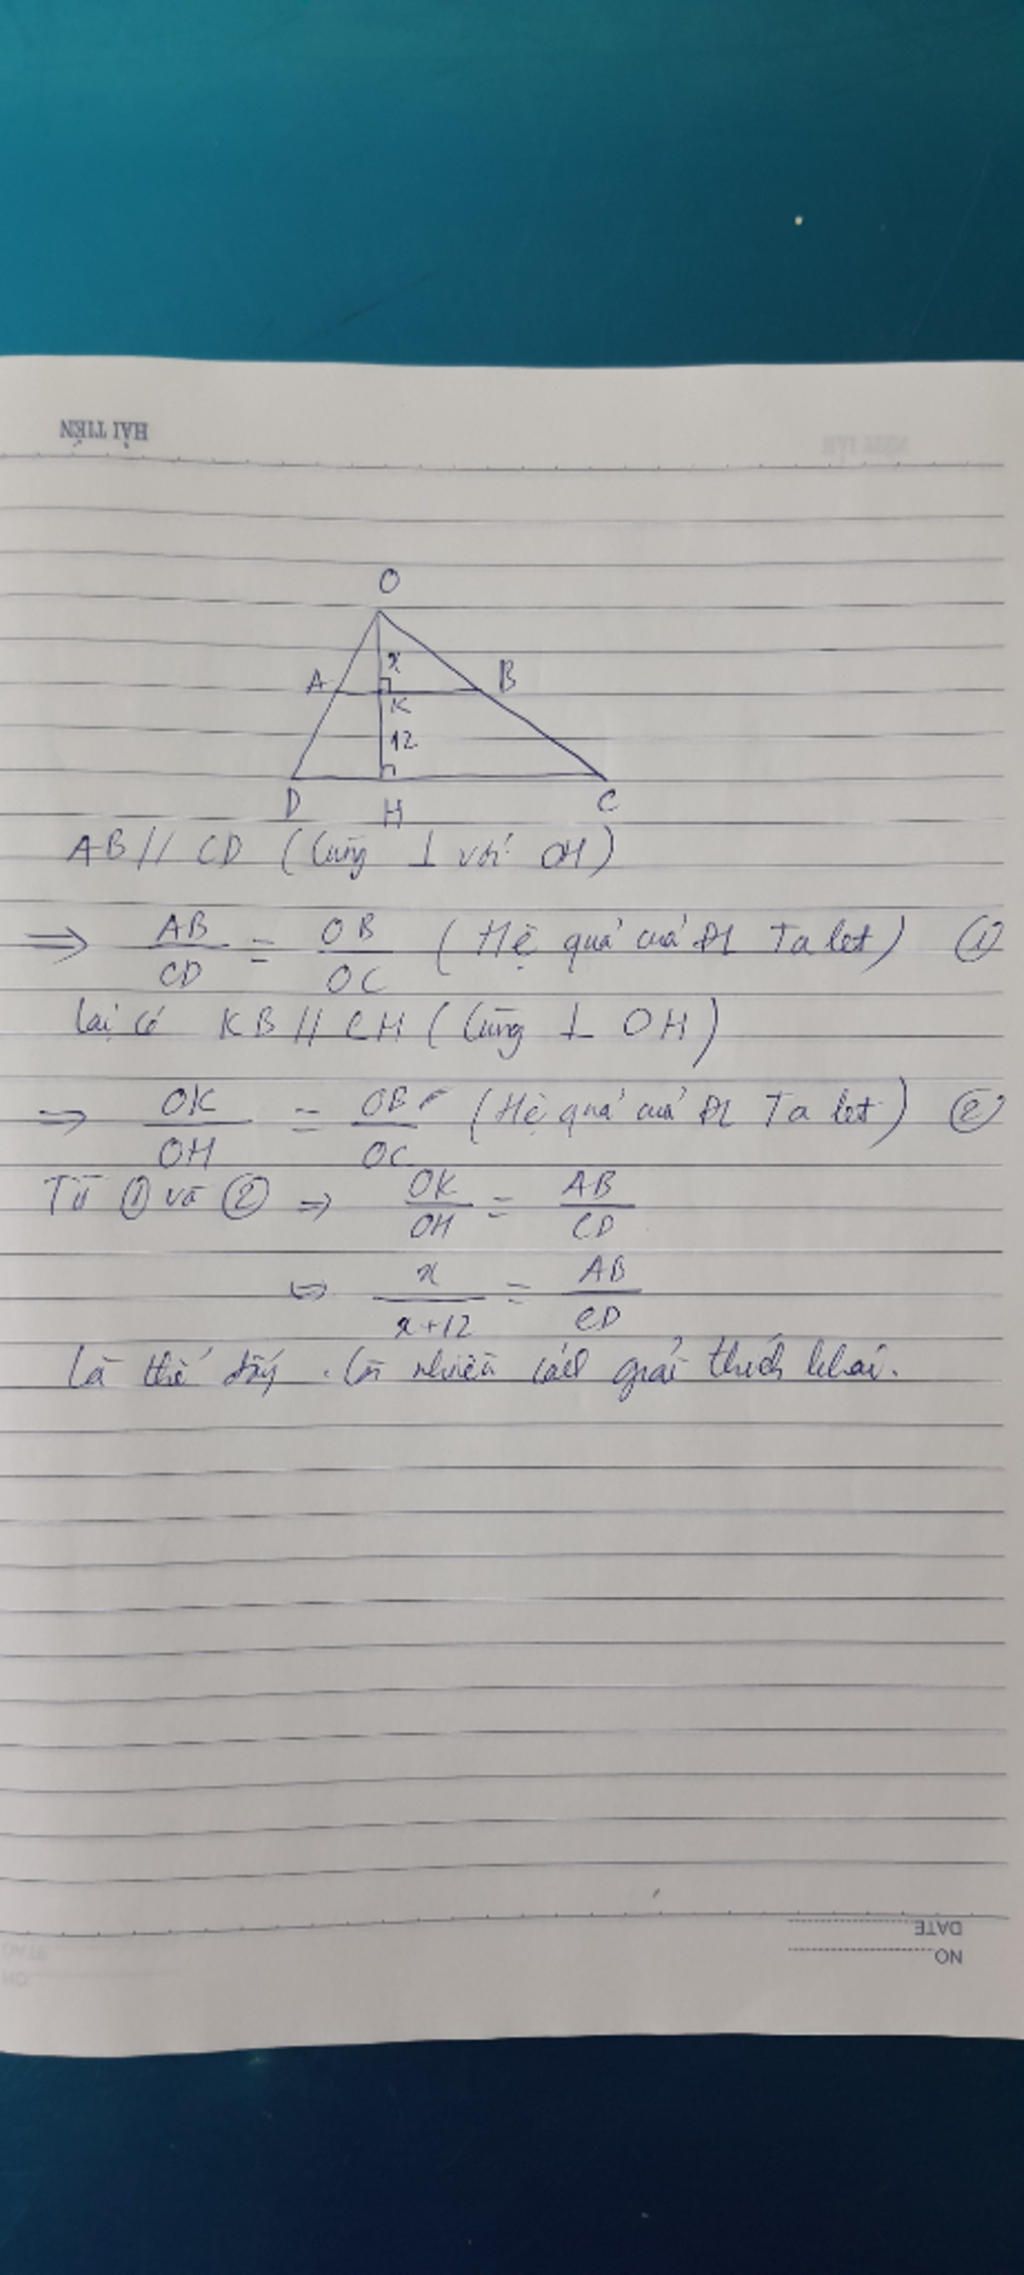 HẢI TIẾN
O
x
A
B
K
12
D
H
C
AB // CD (Cùng ⊥ với OH)
⇒ AB/CD = OB/OC (Hệ quả của ĐL Ta let) ①
lại có KB // CH (Cùng ⊥ OH)
⇒ OK/OH = OB/OC (Hệ quả của ĐL Ta let) ②
Từ ① và ② ⇒ OK/OH = AB/CD
⇔ x/x+12 = AB/CD
Là thế đấy. Còn nhiều cách giải thích khác.
DATE
NO